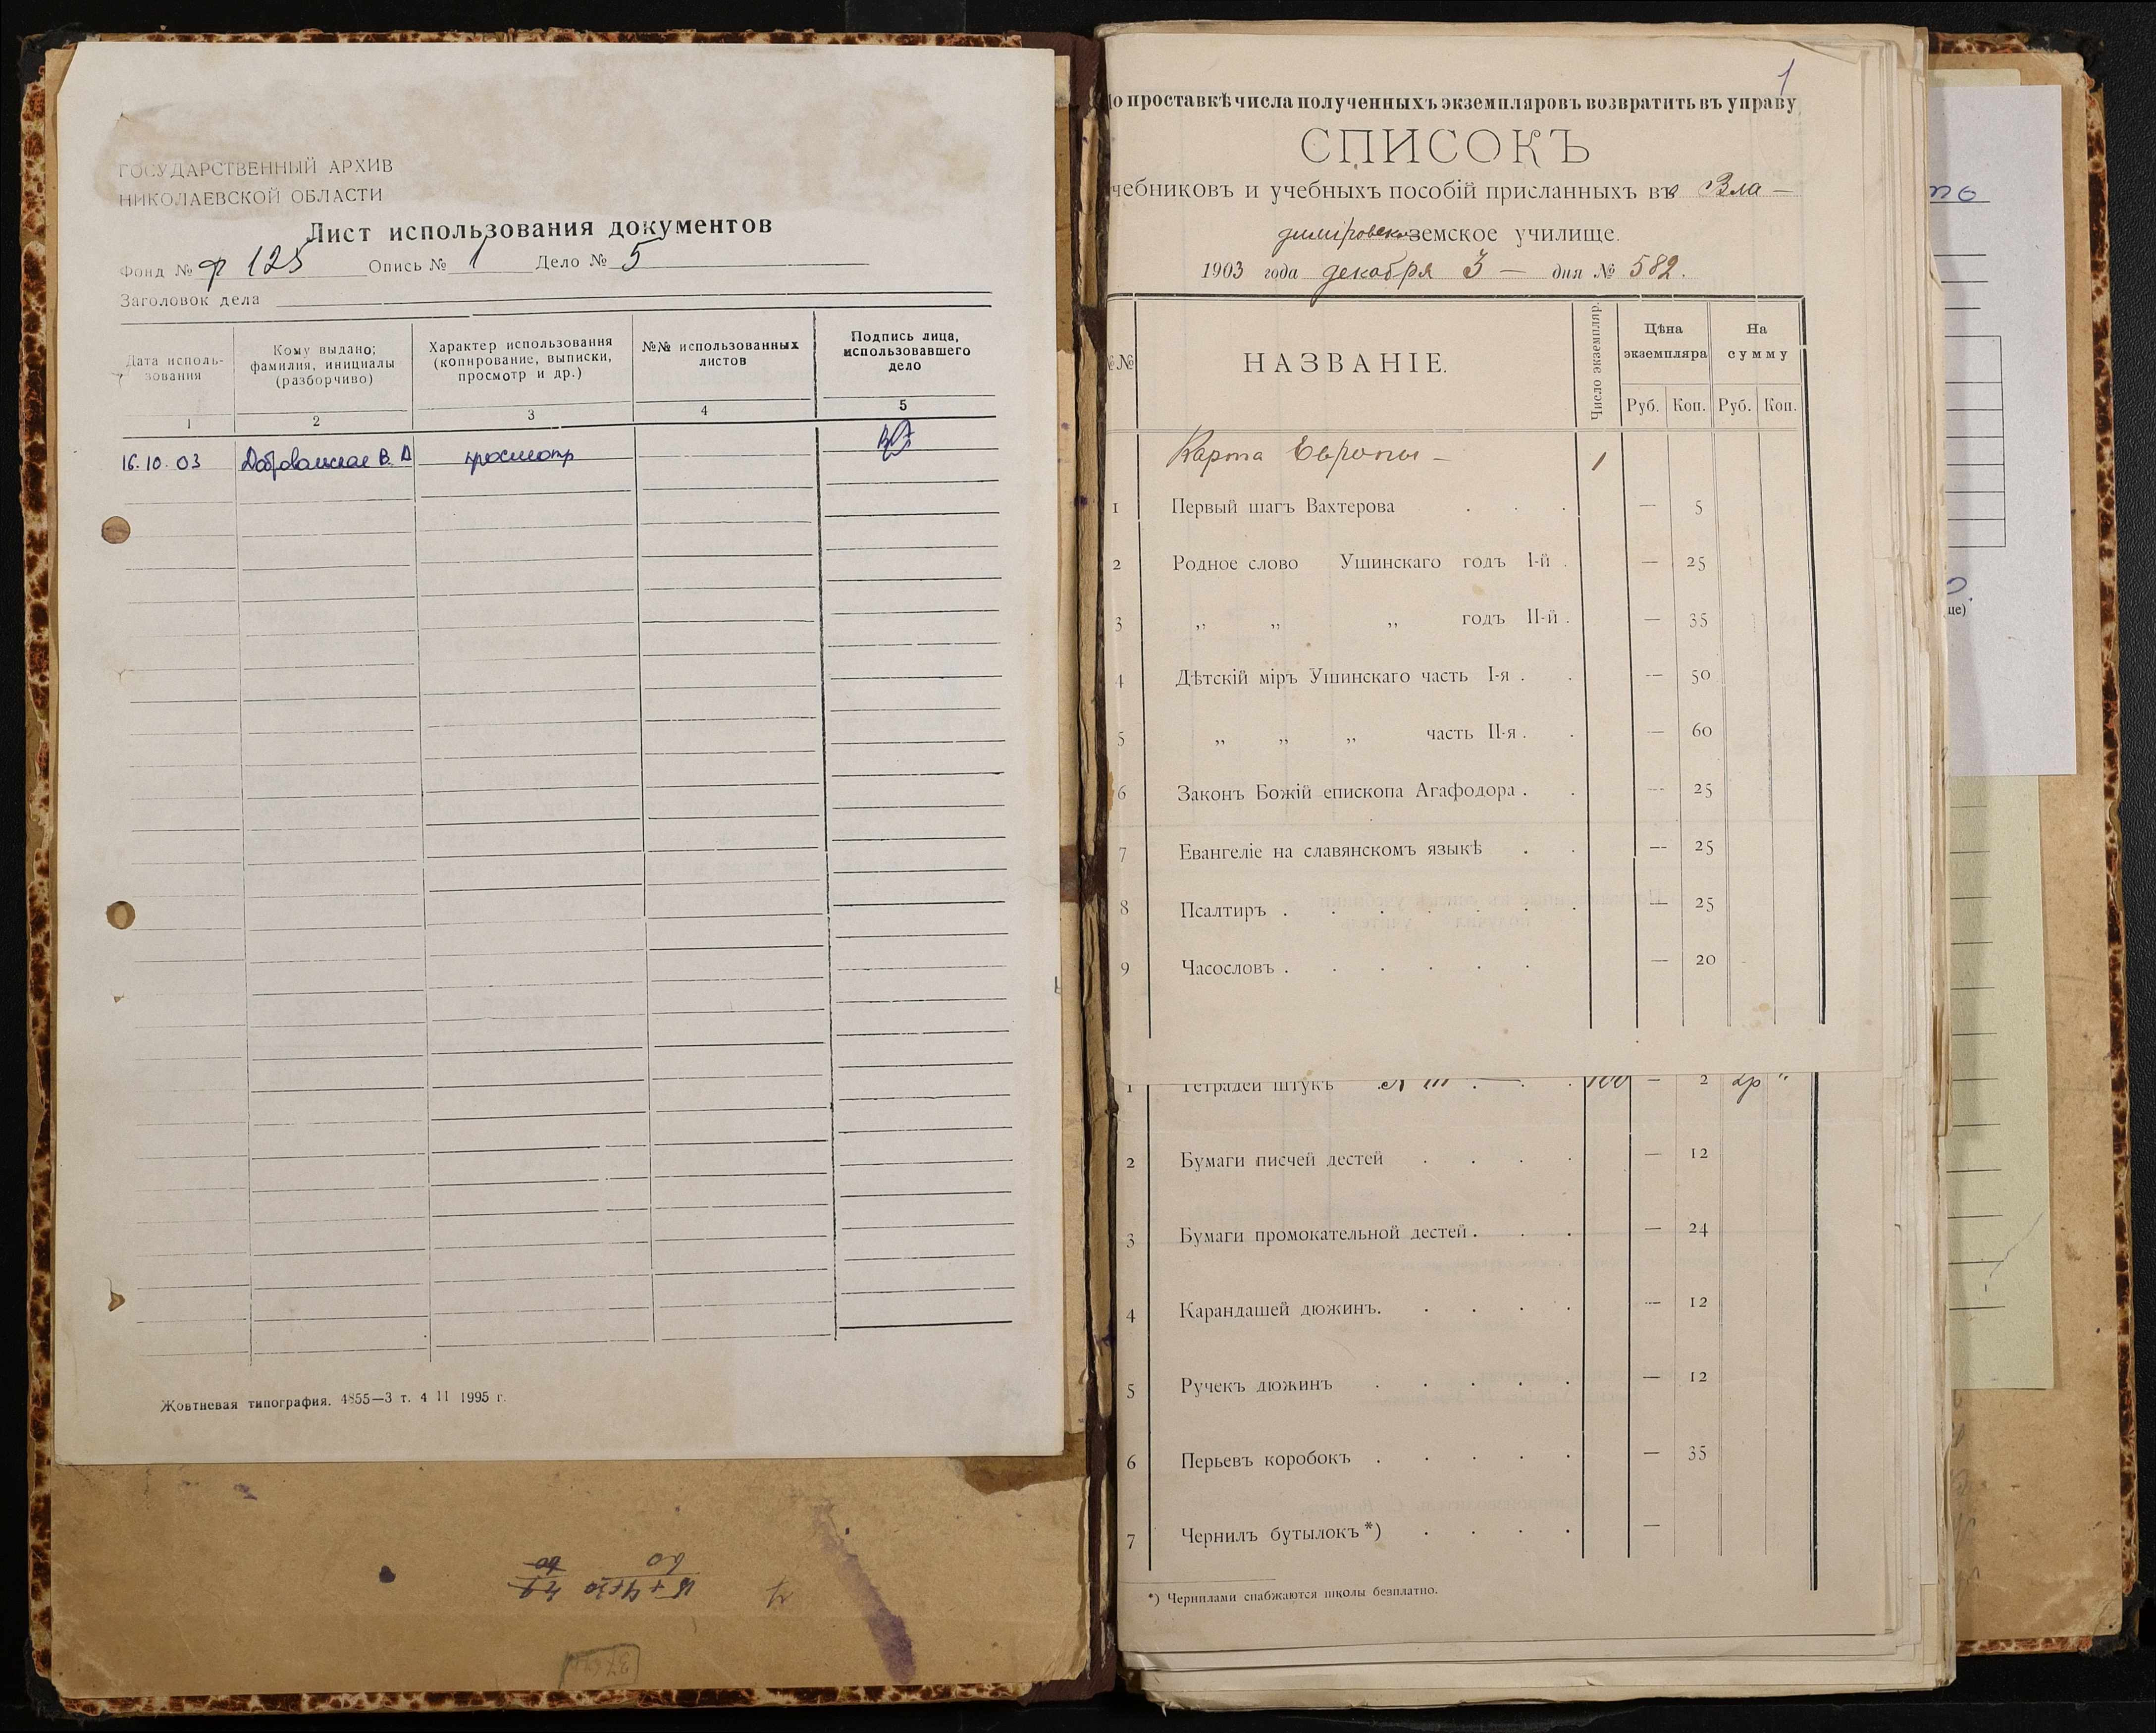 ГОСУДАРСТВЕННЫЙ АРХИВ
НИКОЛАЕВСКОЙ ОБЛАСТИ
Лист использования документов
Фонд № Ф 125 Опись № 1 Дело № 5
Заголовок дела
Дата исполь-
зования
Кому выдано;
фамилия, инициалы
(разборчиво)
Характер использования
(копирование, выписки,
просмотр и др.)
№№ использованных
листов
Подпись лица,
использовавшего
дело
1 2 3 4 5
16.10.03 В. просмотр
Жовтневая типография. 4855—3 т. 4 11 1995 г.
1
о проставкѣ числа полученныхъ экземпляровъ возвратить въ управу
СПИСОКЪ
чебниковъ и учебныхъ пособій присланныхъ въ Вла—
димировское земское училище.
1903 года декабря 3 — дня № 582.
№№
НАЗВАНІЕ.
Число экземпляр.
Цѣна
экземпляра
На
сумму
Руб. Коп. Руб. Коп.
Карта Европы — 1
1 Первый шагъ Вахтерова . . . — 5
2 Родное слово Ушинскаго годъ I-й . — 25
3 „ „ „ годъ II-й . — 35
4 Дѣтскій міръ Ушинскаго часть I-я . . — 50
5 „ „ „ часть II-я . . — 60
6 Законъ Божій епископа Агафодора . . — 25
7 Евангеліе на славянскомъ языкѣ . . — 25
8 Псалтиръ . . . . . . . — 25
9 Часословъ . . . . . . — 20
1 Тетрадей штукъ № III . — . . 100 — 2 2р "
2 Бумаги писчей дестей . . . . — 12
3 Бумаги промокательной дестей . . . — 24
4 Карандашей дюжинъ. . . . . — 12
5 Ручекъ дюжинъ . . . . . — 12
6 Перьевъ коробокъ . . . . . — 35
7 Чернилъ бутылокъ *) . . . . —
*) Чернилами снабжаются школы безплатно.
ще)